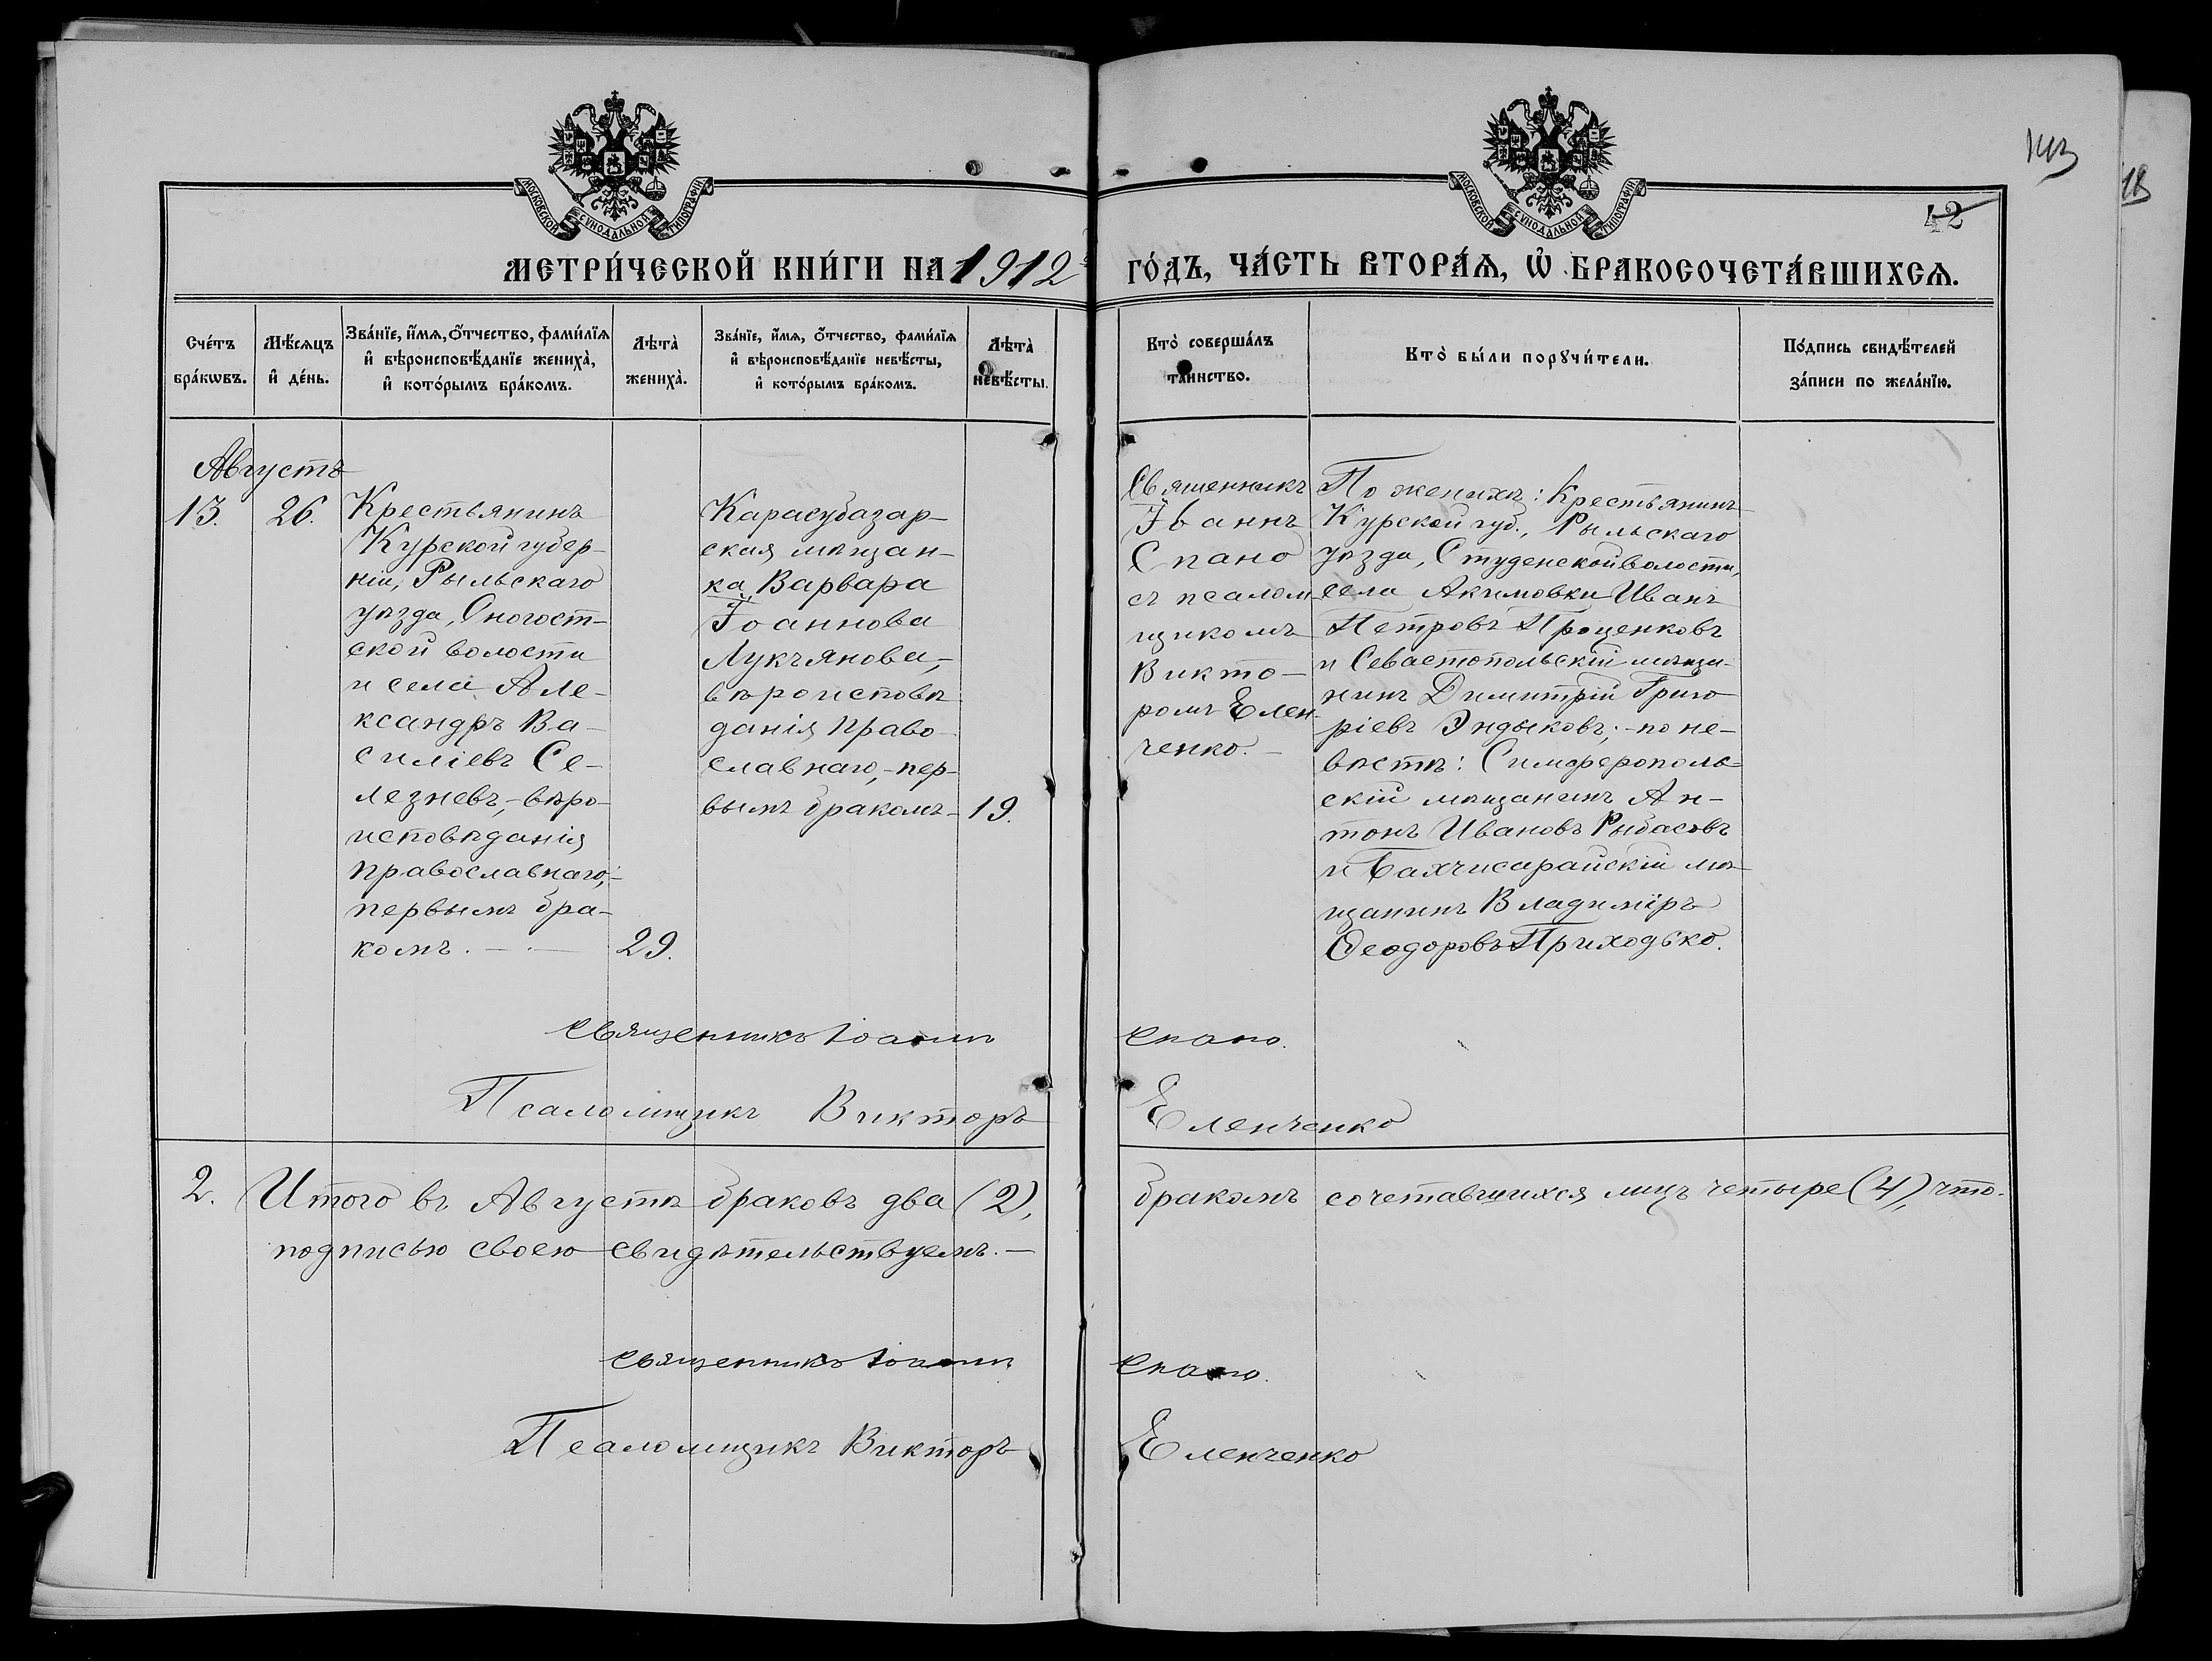 МОСКОВСКОЙ СѴНОДАЛЬНОЙ ТИПОГРАФІИ
МОСКОВСКОЙ СѴНОДАЛЬНОЙ ТИПОГРАФІИ
42
МЕТРИ́ЧЕСКОЙ КНИ́ГИ НА 1912 ГО́ДЪ, ЧА́СТЬ ВТОРА́Ѧ, Ѡ҆ БРАКОСОЧЕТА́ВШИХСѦ.
Сче́тъ
бра́кѡвъ.
Мѣ́сѧцъ
и҆ де́нь.
Зва́нїе, и҆́мѧ, ѻ҆́тчество, фами́лїѧ
и҆ вѣроисповѣ́данїе жениха̀,
и҆ кото́рымъ бра́комъ.
Лѣта̀
жениха̀.
Зва́нїе, и҆́мѧ, ѻ҆́тчество, фами́лїѧ
и҆ вѣроисповѣ́данїе невѣ́сты,
и҆ кото́рымъ бра́комъ.
Лѣта̀
невѣ́сты.
Кто̀ соверша́лъ
таинство.
Кто̀ бы́ли порꙋчи́тели.
По́дпись свидѣ́телей
за́писи по жела́нїю.
Августъ
13.
26.
Крестьянинъ
Курской губер-
ніи, Рыльскаго
уѣзда, Сногост-
ской волости
и села Але-
ксандръ Ва-
силіевъ Се-
лезневъ,-вѣро-
исповѣданія
православнаго,-
первымъ бра-
комъ.
29.
Карасубазар-
ская мѣщан-
ка Варвара
Іоаннова
Лукъянова,-
вѣроисповѣ-
данія право-
славнаго,-пер-
вымъ бракомъ-
19.
Священникъ
Іваннъ
Спано
съ псалом
щикомъ
Викто-
ромъ Елен-
ченко.-
По женихѣ: Крестьянинъ
Курской губ., Рыльскаго
уѣзда, Студенской волости,
села Акимовки Иванъ
Петровъ Проценковъ
и Севастопольскій мѣща-
нинъ Димитрій Григо
ріевъ Эндыковъ; -по не-
вѣстѣ: Симферополь-
скій мѣщанинъ Ан-
тонъ Ивановъ Рыбасовъ
и Бахчисарайскій мѣ-
щанинъ Владиміръ
Ѳеодоровъ Приходько.
Священникъ Іоаннъ Спано.
Псаломщикъ Викторъ Еленченко
2. Итого въ Августѣ браковъ два (2), бракомъ сочетавшихся лицъ четыре (4), что-
подписью своею свидѣтельствуемъ.-
Священникъ Іоаннъ Спано.
Псаломщикъ Викторъ Еленченко